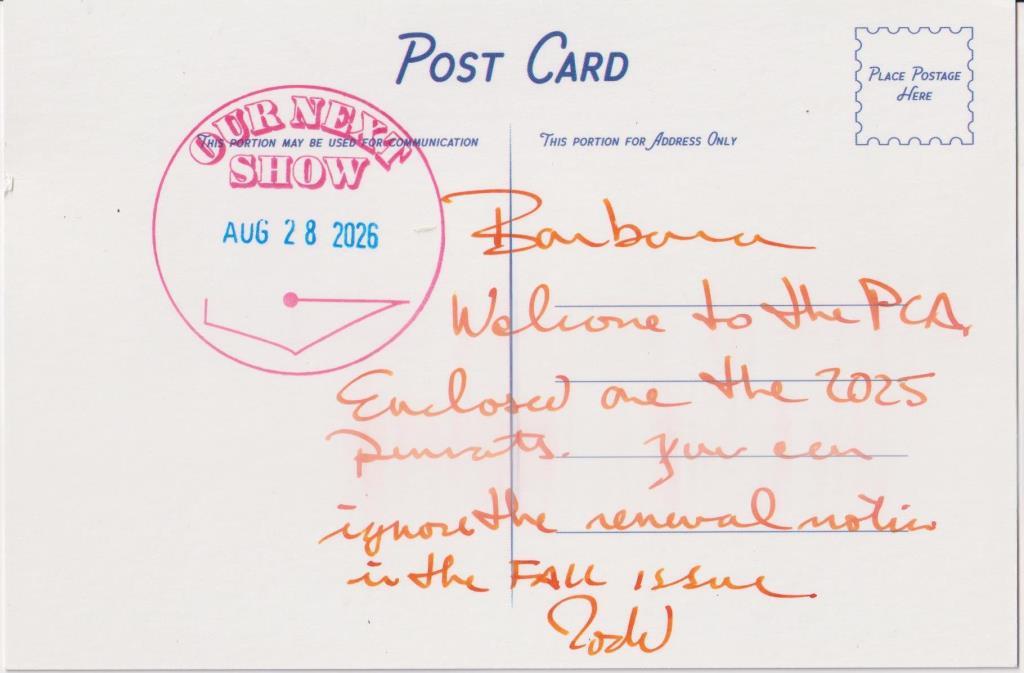 POST CARD
PLACE POSTAGE
HERE
OUR NEXT
SHOW
AUG 28 2026
THIS PORTION MAY BE USED FOR COMMUNICATION
THIS PORTION FOR ADDRESS ONLY
Barbara
Welcome to the PCA.
Enclosed are the 2025
. You can
ignore the renewal notice
in the FALL ISSUE.
Todd